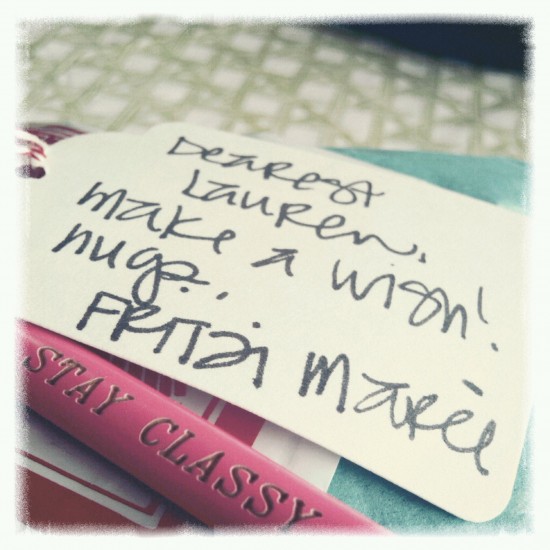 Dearest
Lauren,
make a wish!
hugs,
FRITZI Marie
STAY CLASSY